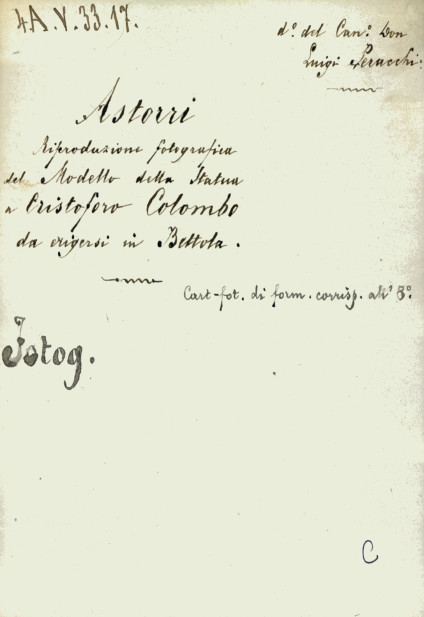 4A.V.33.17.
d.º del Can.º Don
Luigi Peracchi.
Astorri
Riproduzione fotografica
del Modello della Statua
a Cristoforo Colombo
da erigersi in Bettola.
Cart-fot. di form. corrisp. all' 8º.
Fotog.
C